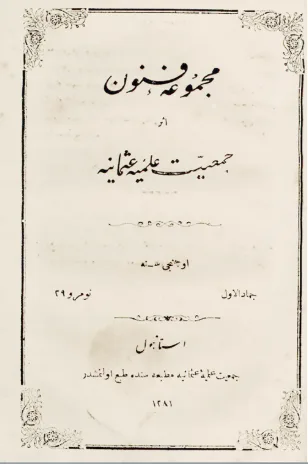 مجموعهٔ فنون
اثر
جمعیّت علمیهٔ عثمانیه
اوچنجی سنه
جماذالاول نومرو ٢٩
استانبول
جمعیت علمیهٔ عثمانیه مطبعه سنده طبع اولنمشدر
١٢٨١